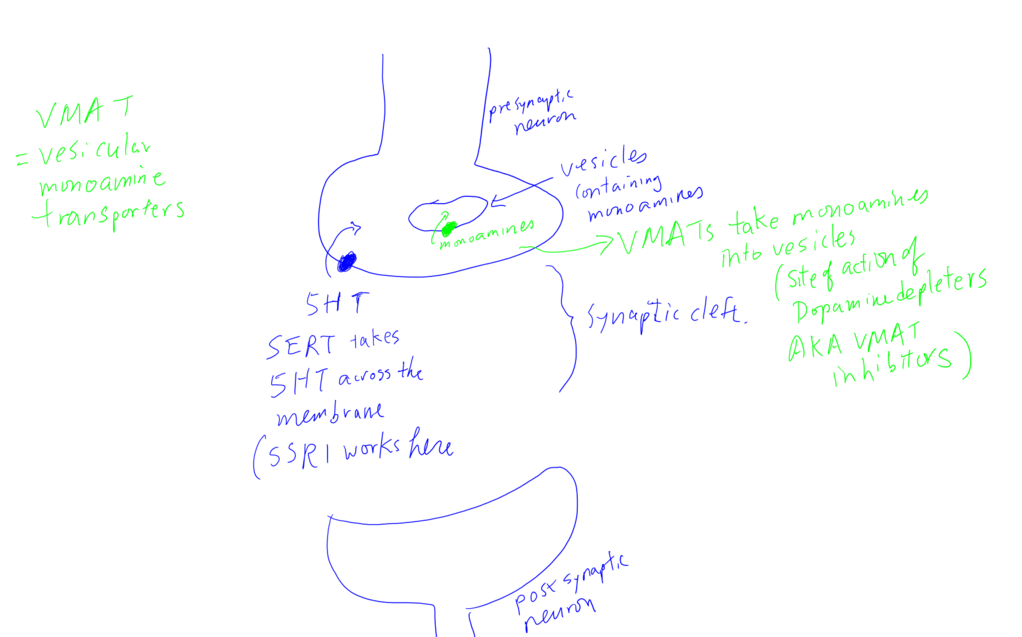 VMAT
= vesicular
monoamine
transporters
presynaptic
neuron
vesicles
containing
monoamines
monoamines
VMATs take monoamines
into vesicles
(Site of action of
Dopamine depleters
AKA VMAT
inhibitors)
5HT
SERT takes
5HT across the
membrane
(SSRI works here
Synaptic cleft.
post synaptic
neuron